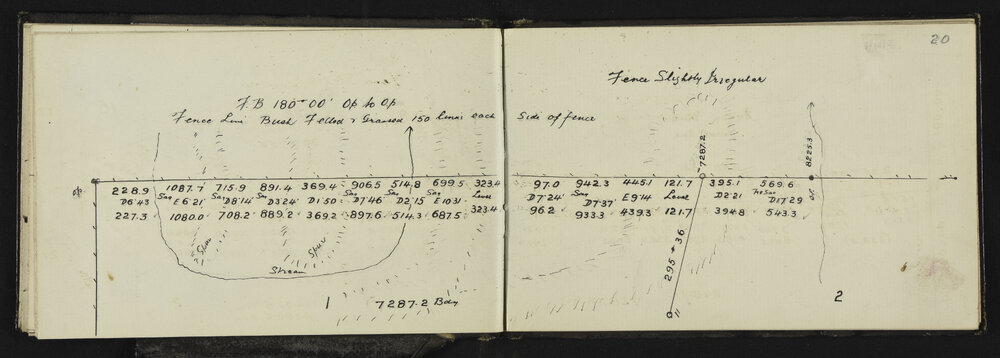 20
Fence Slightly Irregular
F.B 180°00' Op to Op
Fence Line Bush Felled & Grassed 150 links each side of fence
7287.2
8225.3
Op
228.9 1087.7 715.9 891.4 369.4 906.5 514.8 699.5 323.4 97.0 942.3 445.1 121.7 395.1 569.6
Sag Sag Sag Sag Sag Sag No Sag
D6°43 E6°21' D8°14' D3°24' D1°50' D7°46' D2°15 E10°31 Level D7°24' D7°37' E9°14 Level D2°21 D17°29
227.3 1080.0 708.2 889.2 369.2 897.6 514.3 687.5 323.4 96.2 933.3 439.3 121.7 394.8 543.3
Spur
Spur
Stream
295°36
1
7287.2 Bdy
2